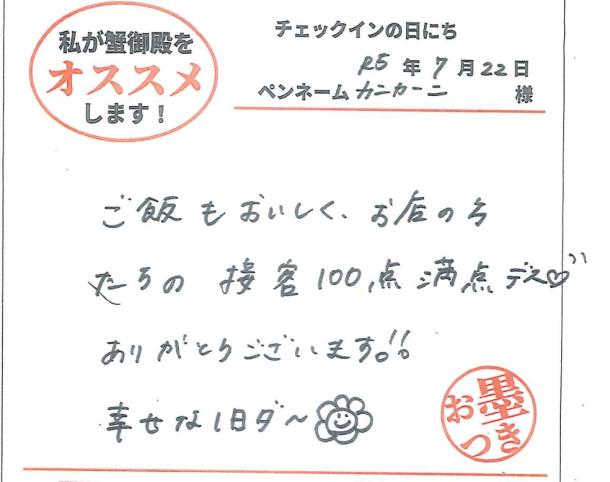 私が蟹御殿を
オススメ
します！
チェックインの日にち
R5年7月22日
ペンネーム カニカーニ 様
ご飯もおいしく、お店の方
たちの 接客100点満点デス♡
ありがとうございます!!
幸せな1日ダ〜
お墨
つき